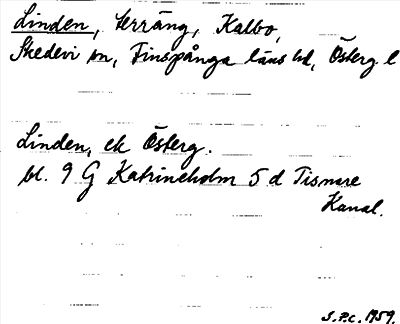 Linden, terräng, Kalbo,
Skedevi sn, Finspånga läns hd, Österg. l
Linden, ek Österg.
bl. 9 G Katrineholm 5 d Tisnare
Kanal.
S.P.C. 1959.